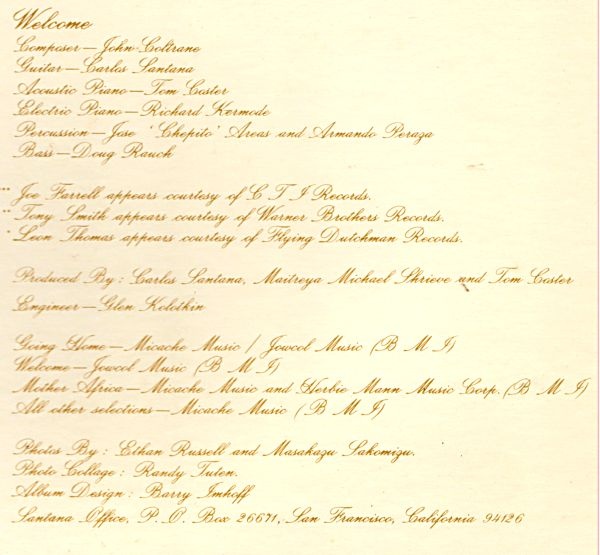 Welcome
Composer—John Coltrane
Guitar—Carlos Santana
Acoustic Piano—Tom Coster
Electric Piano—Richard Kermode
Percussion—Jose 'Chepito' Areas and Armando Peraza
Bass—Doug Rauch
*** Joe Farrell appears courtesy of C T I Records.
** Tony Smith appears courtesy of Warner Brothers Records.
* Leon Thomas appears courtesy of Flying Dutchman Records.
Produced By: Carlos Santana, Maitreya Michael Shrieve and Tom Coster
Engineer—Glen Kolotkin
Going Home—Micache Music / Jowcol Music (B M I)
Welcome—Jowcol Music (B M I)
Mother Africa—Micache Music and Herbie Mann Music Corp. (B M I)
All other selections—Micache Music (B M I)
Photos By: Ethan Russell and Masakazu Sakomizu.
Photo Collage: Randy Tuten.
Album Design: Barry Imhoff
Santana Office, P. O. Box 26671, San Francisco, California 94126